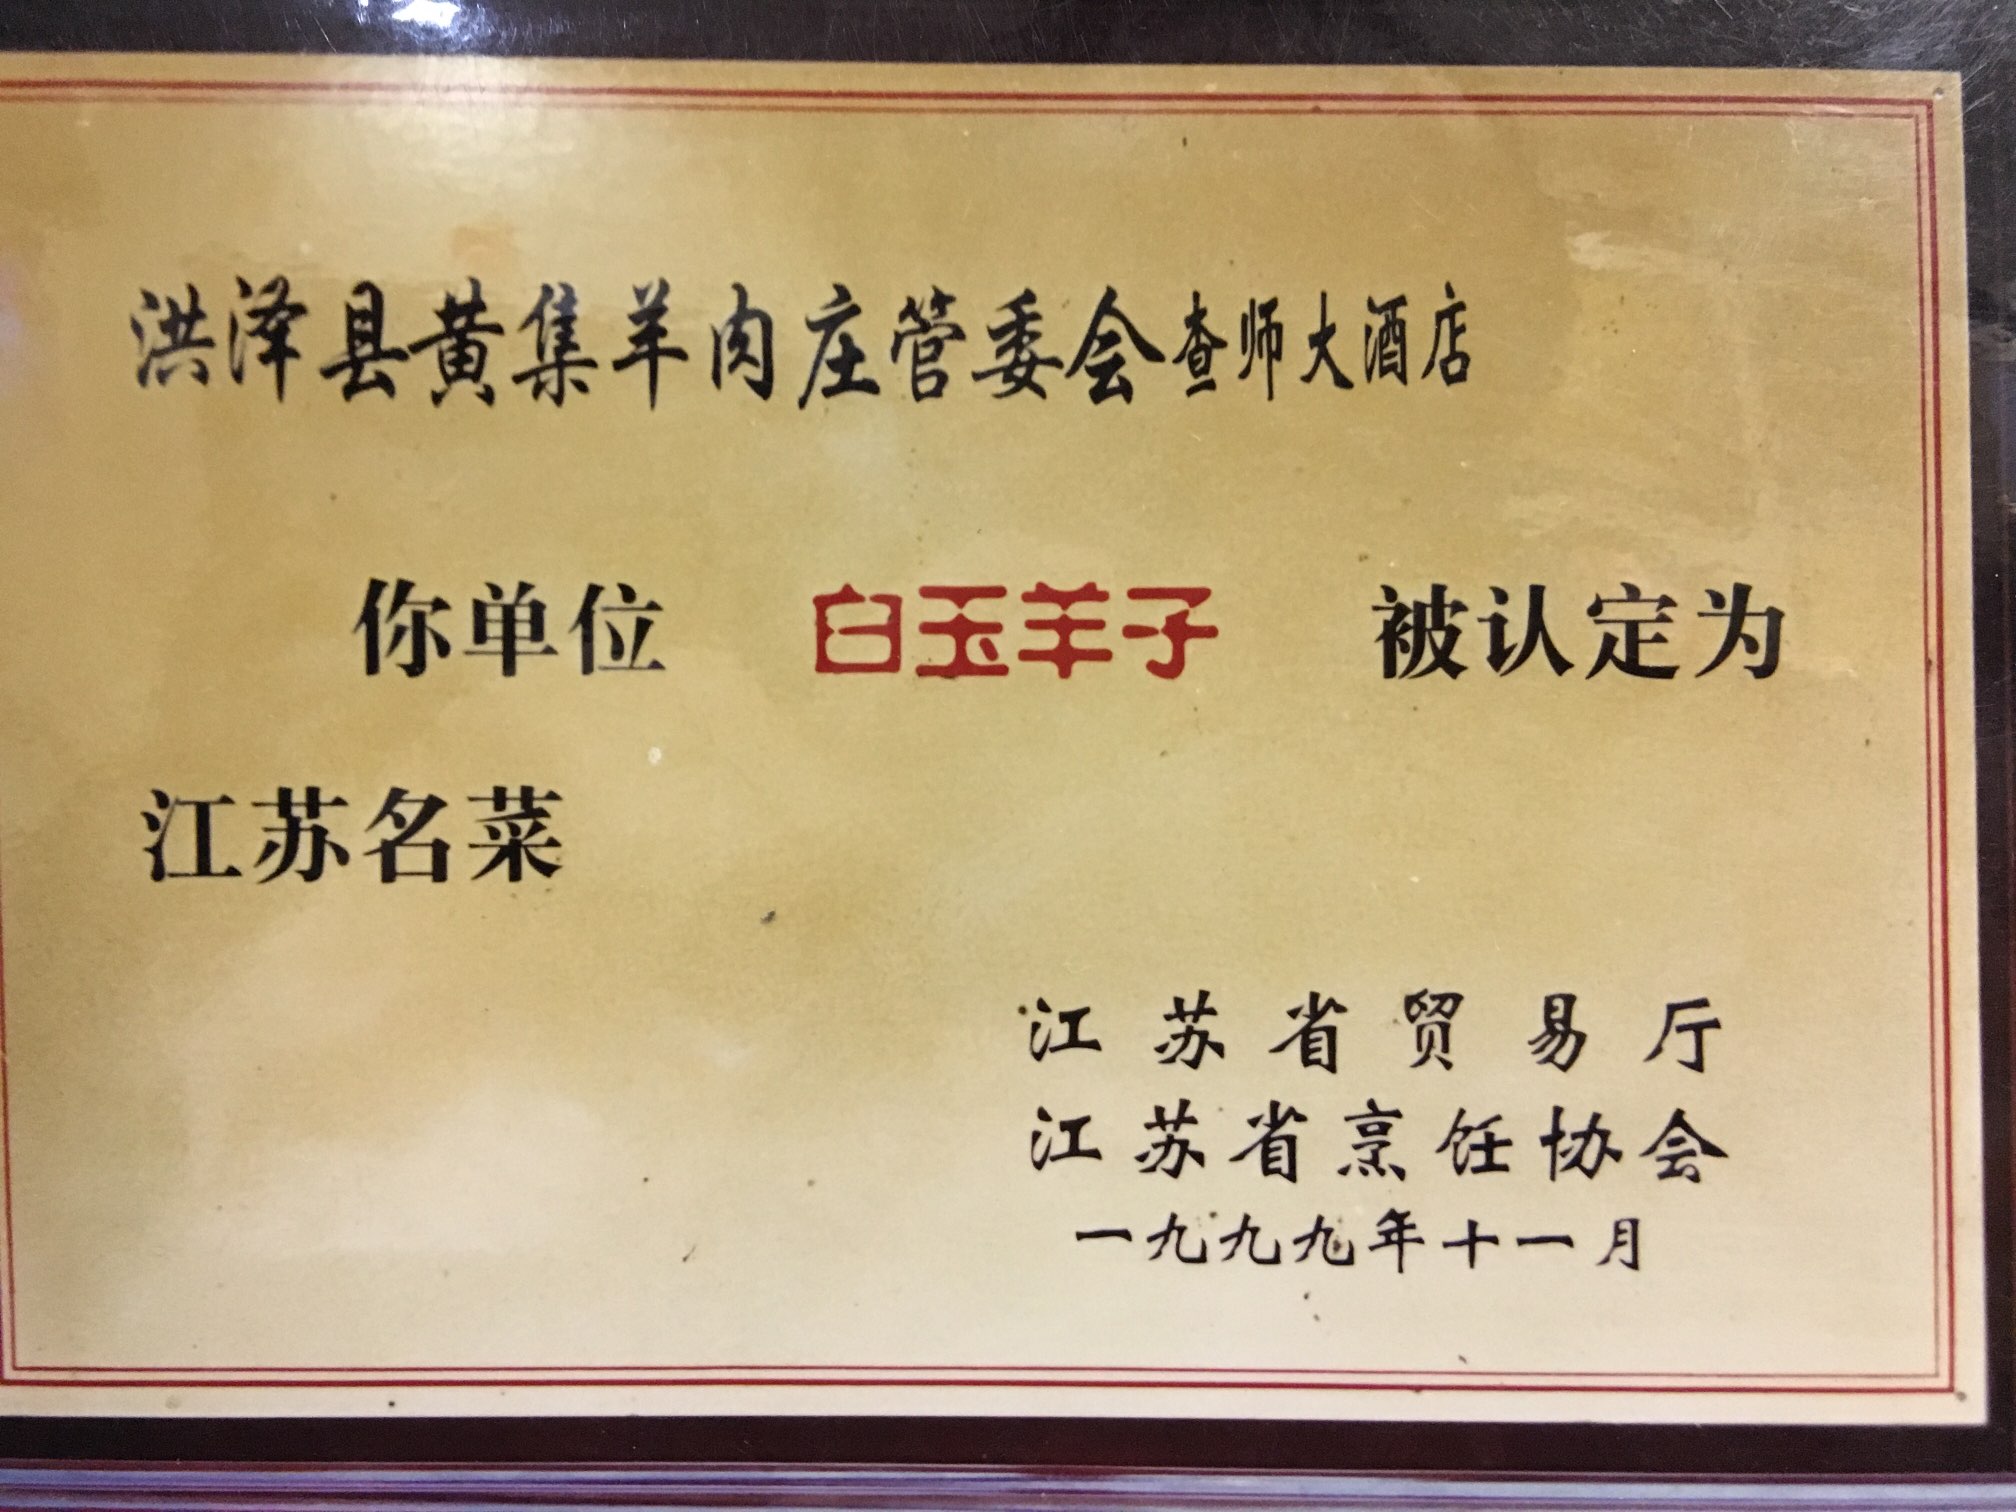 洪泽县黄集羊肉庄管委会查师大酒店
你单位 白玉羊子 被认定为
江苏名菜
江苏省贸易厅
江苏省烹饪协会
一九九九年十一月